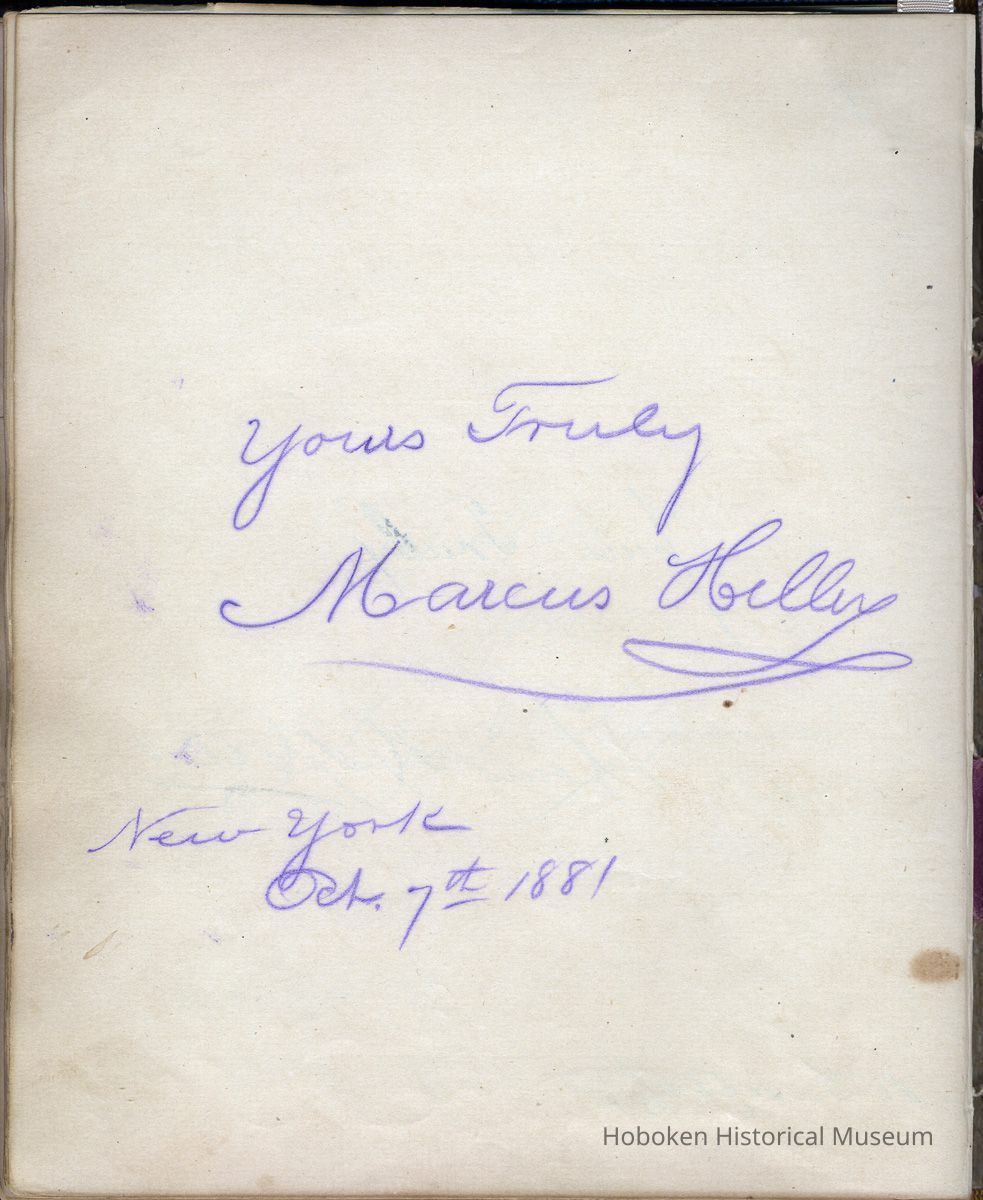 Yours Truly
Marcus Heller
New York
Oct. 7th 1881
Hoboken Historical Museum